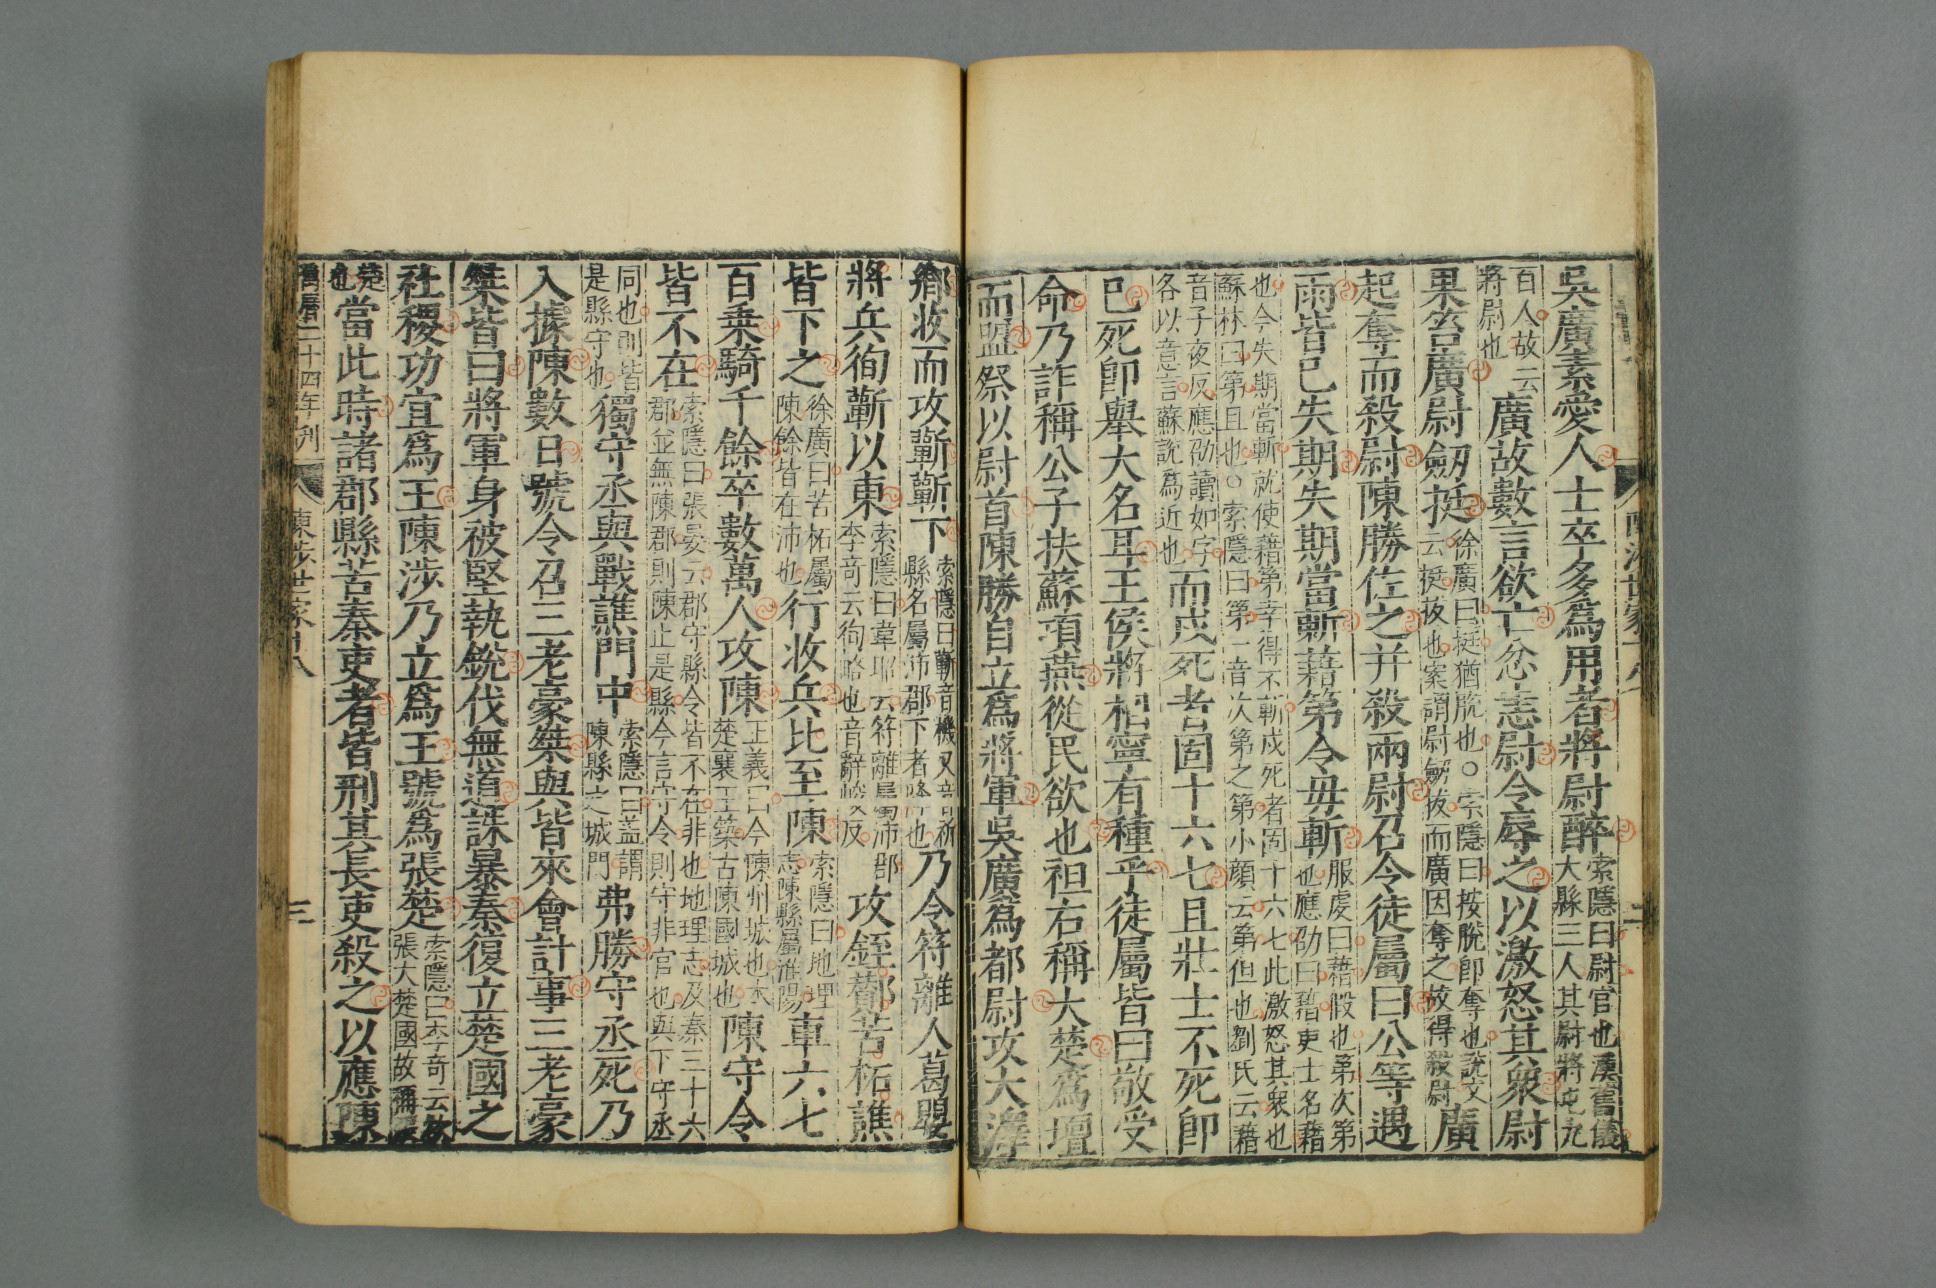 吳廣素愛人士卒多為用者將尉醉索隱曰尉官也漢舊儀大縣三人其尉將屯九
百人故云將尉也廣故數言欲亡忿恚尉令辱之以激怒其衆尉
果笞廣尉劒挺徐廣曰挺猶脫也○索隱曰按脫即奪也說文云挺拔也案謂尉劒拔而廣因奪之故得殺尉廣
起奪而殺尉陳勝佐之并殺兩尉召令徒屬曰公等遇
雨皆已失期失期當斬藉第令毋斬服虔曰藉假也第次第也應劭曰藉吏士名藉
也今失期當斬就使藉第幸得不斬戍死者固十六七此激怒其衆也蘇林曰第且也○索隱曰第一音次第之第小顏云第但也劉氏云藉
音子夜反應劭讀如字各以意言蘇說為近也而戍死者固十六七且壯士不死即
已死即舉大名耳王侯將相寧有種乎徒屬皆曰敬受
命乃詐稱公子扶蘇項燕從民欲也袒右稱大楚為壇
而盟祭以尉首陳勝自立為將軍吳廣為都尉攻大澤
鄉收而攻蘄蘄下索隱曰蘄音機又音祈縣名屬沛郡下者降也乃令符離人葛嬰
將兵徇蘄以東索隱曰韋昭云符離屬沛郡李奇云徇略也音辭峻反攻銍酇苦柘譙
皆下之徐廣曰苦柘屬陳餘皆在沛也行收兵比至陳索隱曰地理志陳縣屬淮陽車六七
百乘騎千餘卒數萬人攻陳正義曰今陳州城也本楚襄王築古陳國城也陳守令
皆不在索隱曰張晏云郡守縣令皆不在非也地理志及秦三十六郡並無陳郡則陳止是縣今言守令則守非官也與下守丞
同也則皆是縣守也獨守丞與戰譙門中索隱曰蓋謂陳縣之城門弗勝守丞死乃
入據陳數日號令召三老豪桀與皆來會計事三老豪
桀皆曰將軍身被堅執銳伐無道誅暴秦復立楚國之
社稷功宜為王陳涉乃立為王號為張楚索隱曰李奇云欲張大楚國故稱張
楚也當此時諸郡縣苦秦吏者皆刑其長吏殺之以應陳
萬曆二十四年刊 陳涉世家十八 三